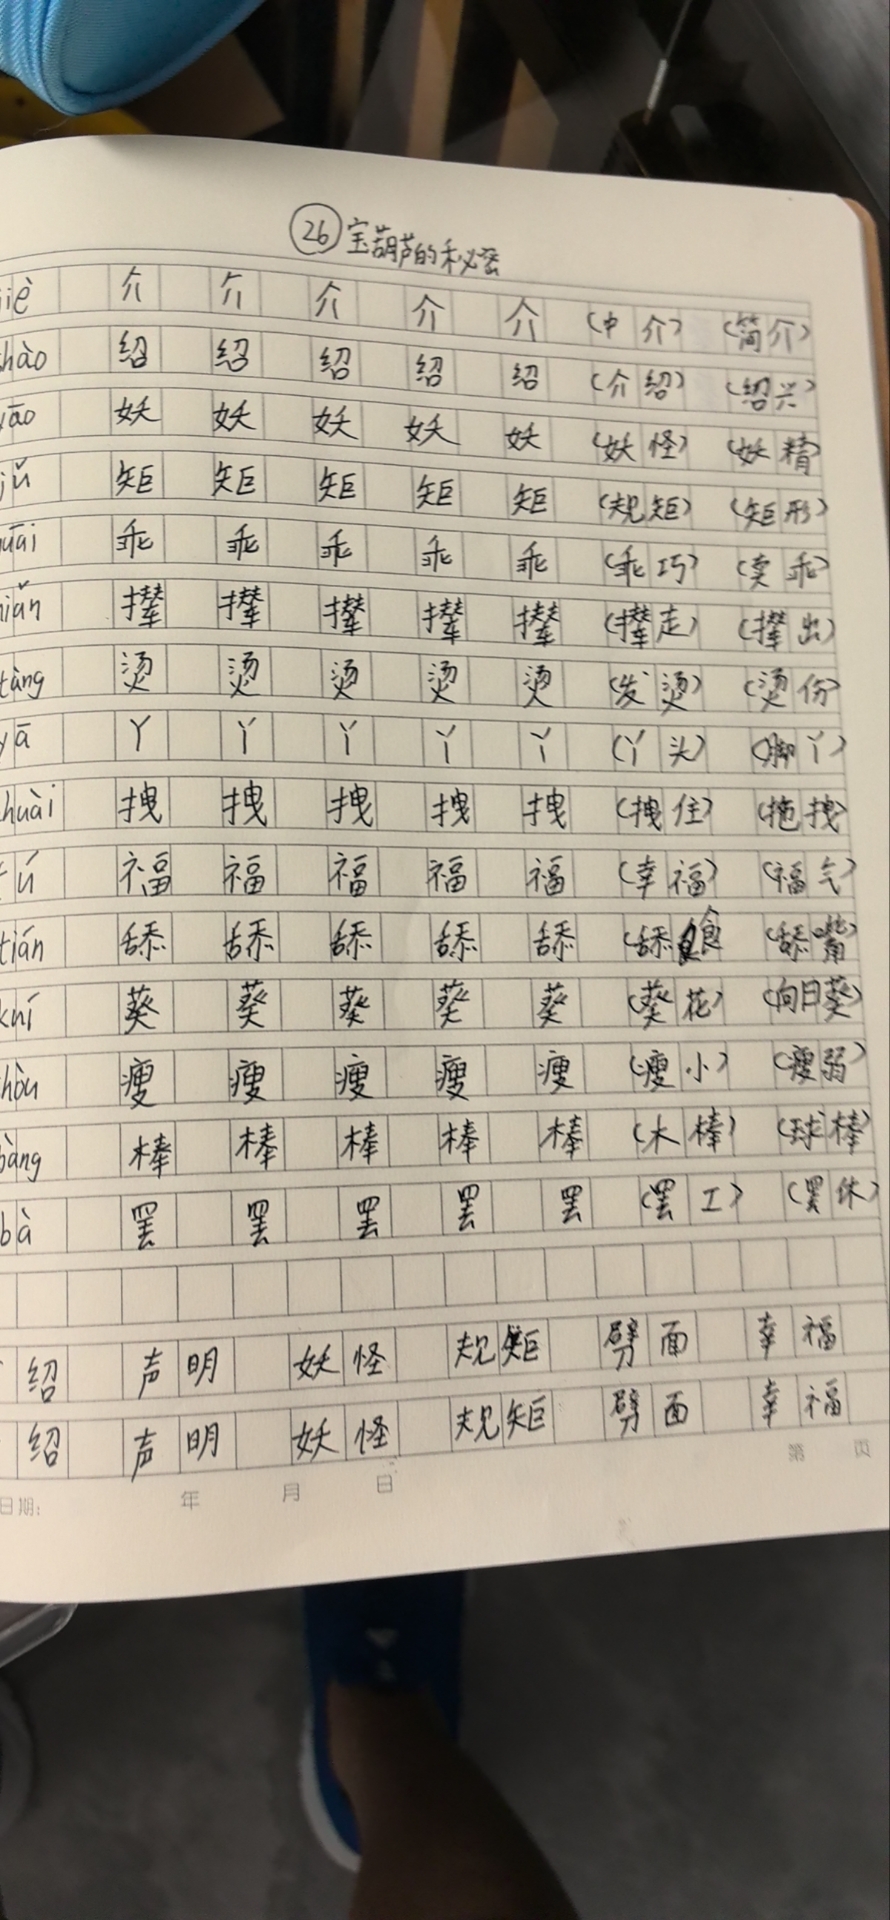 26 宝葫芦的秘密
iè 介 介 介 介 介 (中介) (简介)
hào 绍 绍 绍 绍 绍 (介绍) (绍兴)
yāo 妖 妖 妖 妖 妖 (妖怪) (妖精)
jǔ 矩 矩 矩 矩 矩 (规矩) (矩形)
uāi 乖 乖 乖 乖 乖 (乖巧) (卖乖)
iǎn 撵 撵 撵 撵 撵 (撵走) (撵出)
tàng 烫 烫 烫 烫 烫 (发烫) (烫伤)
yā 丫 丫 丫 丫 丫 (丫头) (脚丫)
huài 拽 拽 拽 拽 拽 (拽住) (拖拽)
ú 福 福 福 福 福 (幸福) (福气)
tián 舔 舔 舔 舔 舔 (舔食) (舔嘴)
kuí 葵 葵 葵 葵 葵 (葵花) (向日葵)
hòu 瘦 瘦 瘦 瘦 瘦 (瘦小) (瘦弱)
bàng 棒 棒 棒 棒 棒 (木棒) (球棒)
bà 罢 罢 罢 罢 罢 (罢工) (罢休)
绍 声明 妖怪 规矩 劈面 幸福
绍 声明 妖怪 规矩 劈面 幸福
日期: 年 月 日 第 页